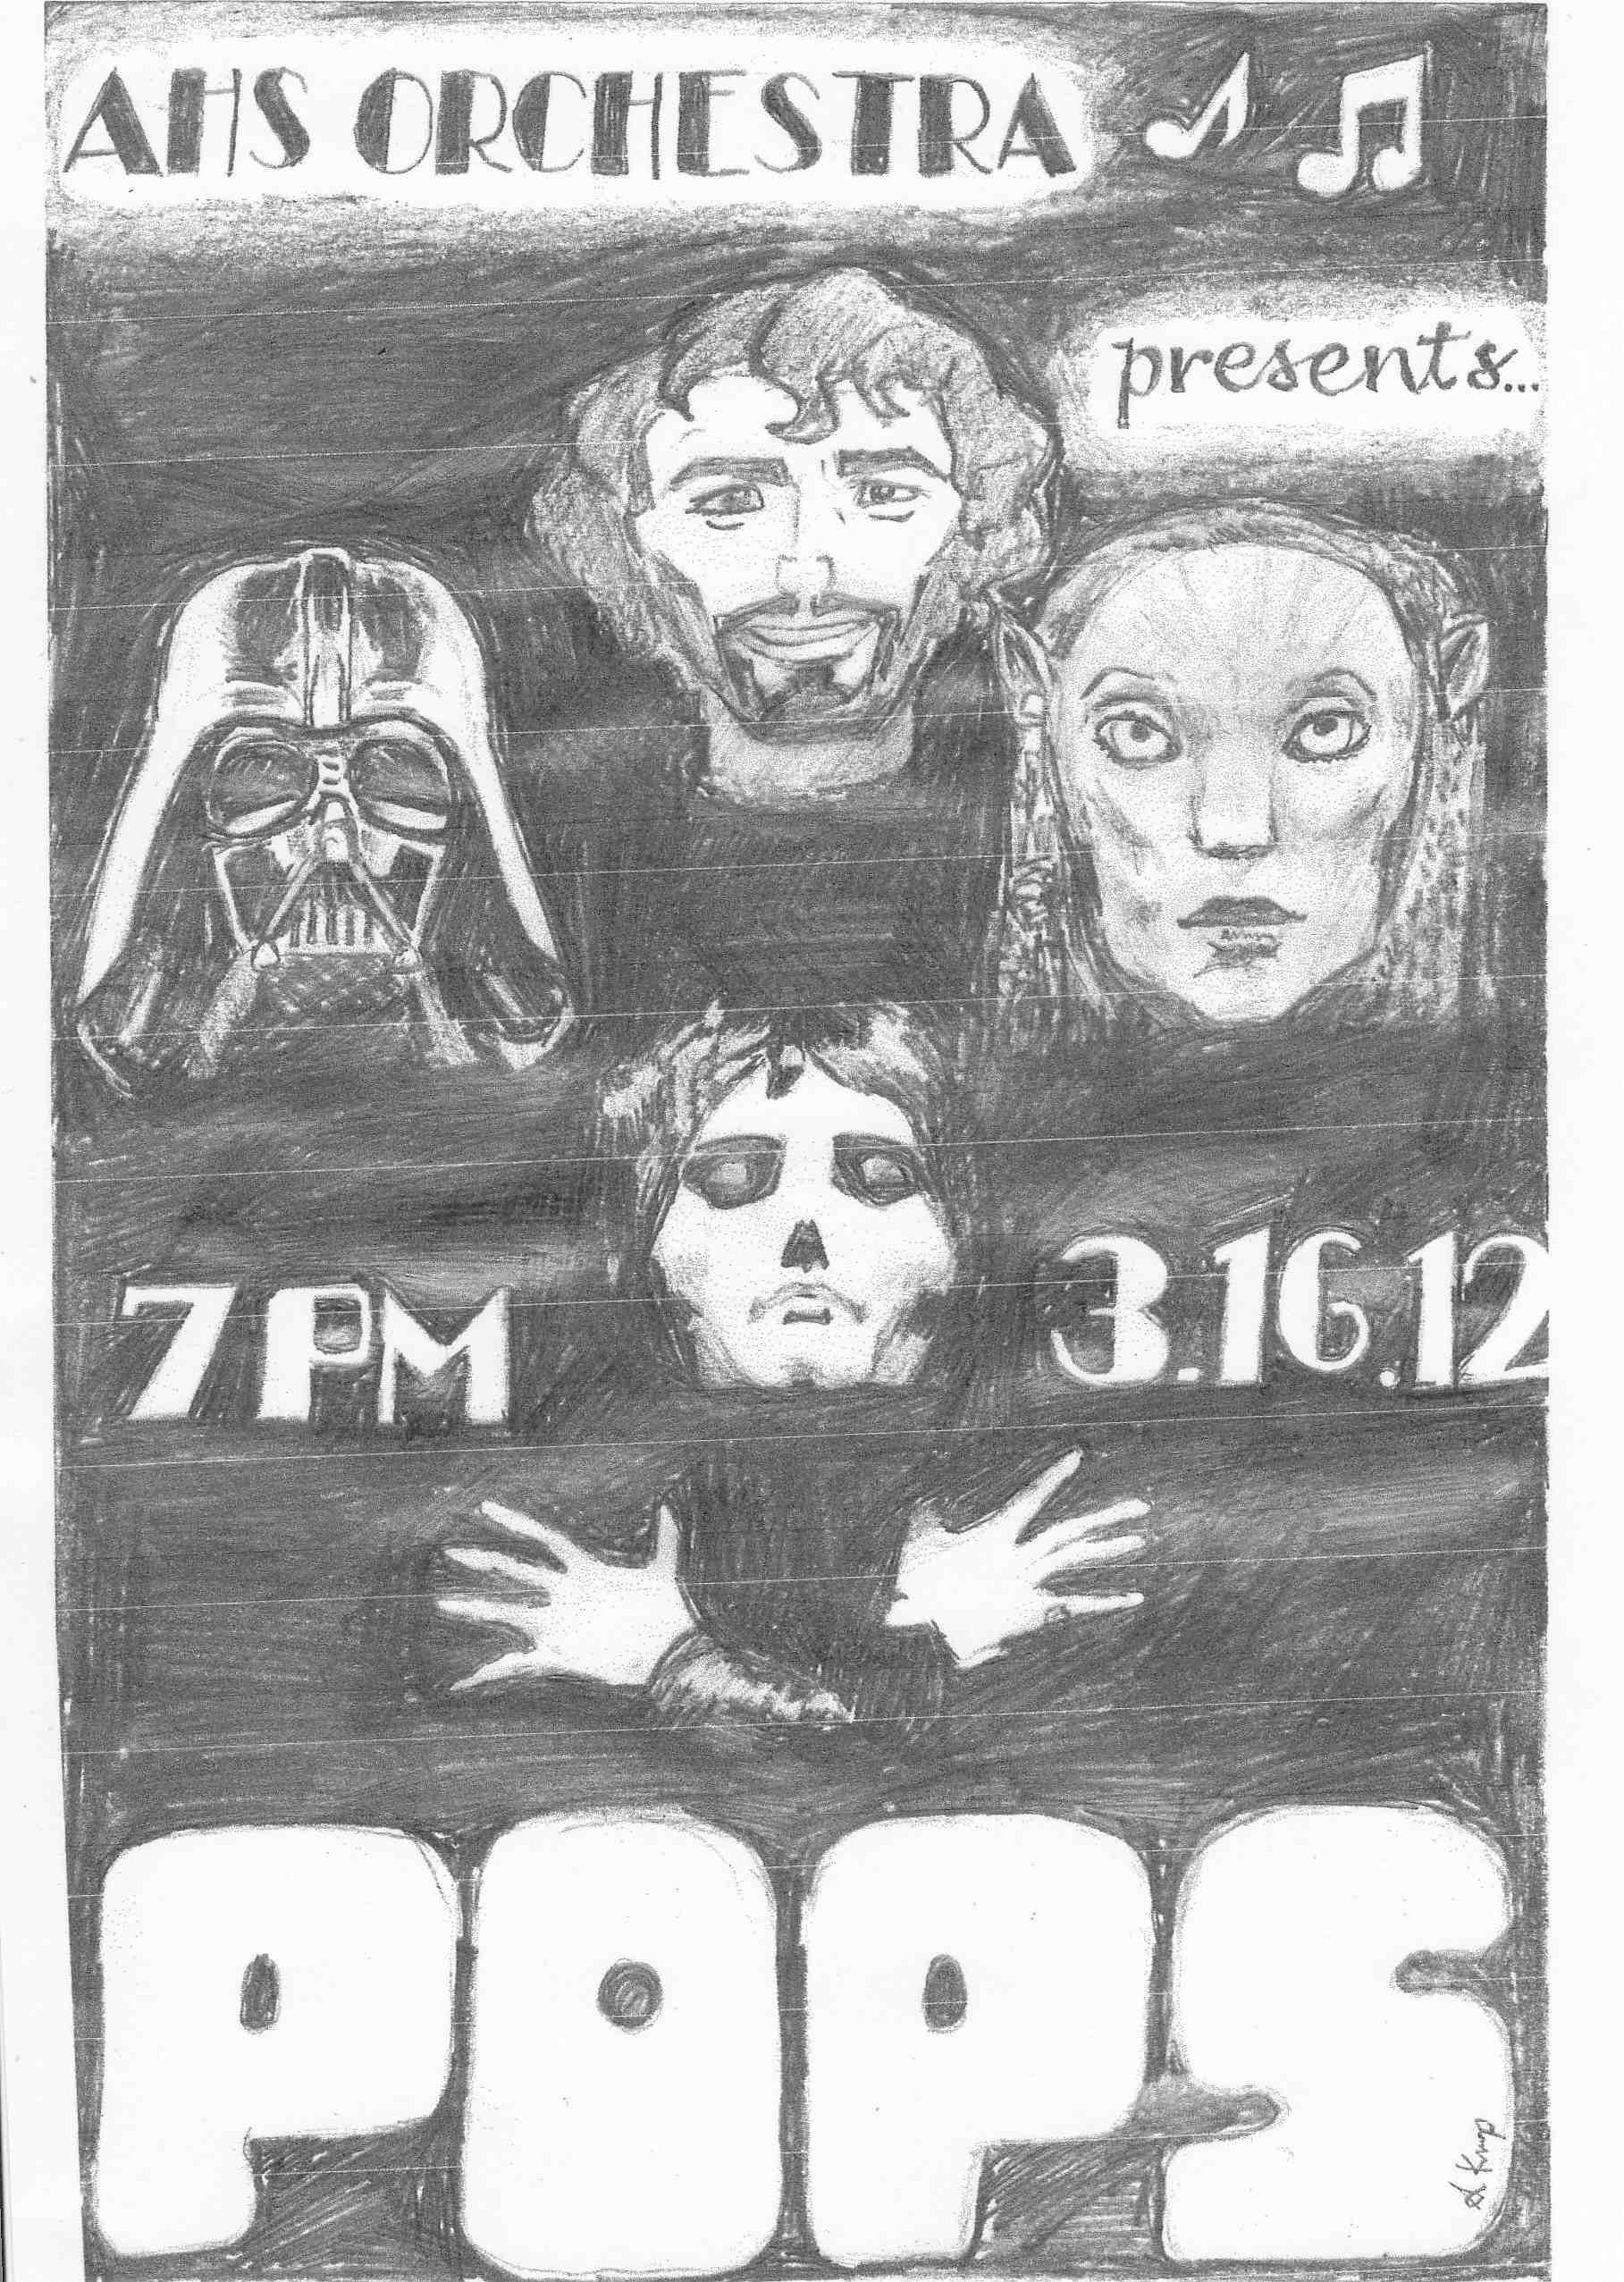 AHS ORCHESTRA
presents...
7PM
3.16.12
POPS